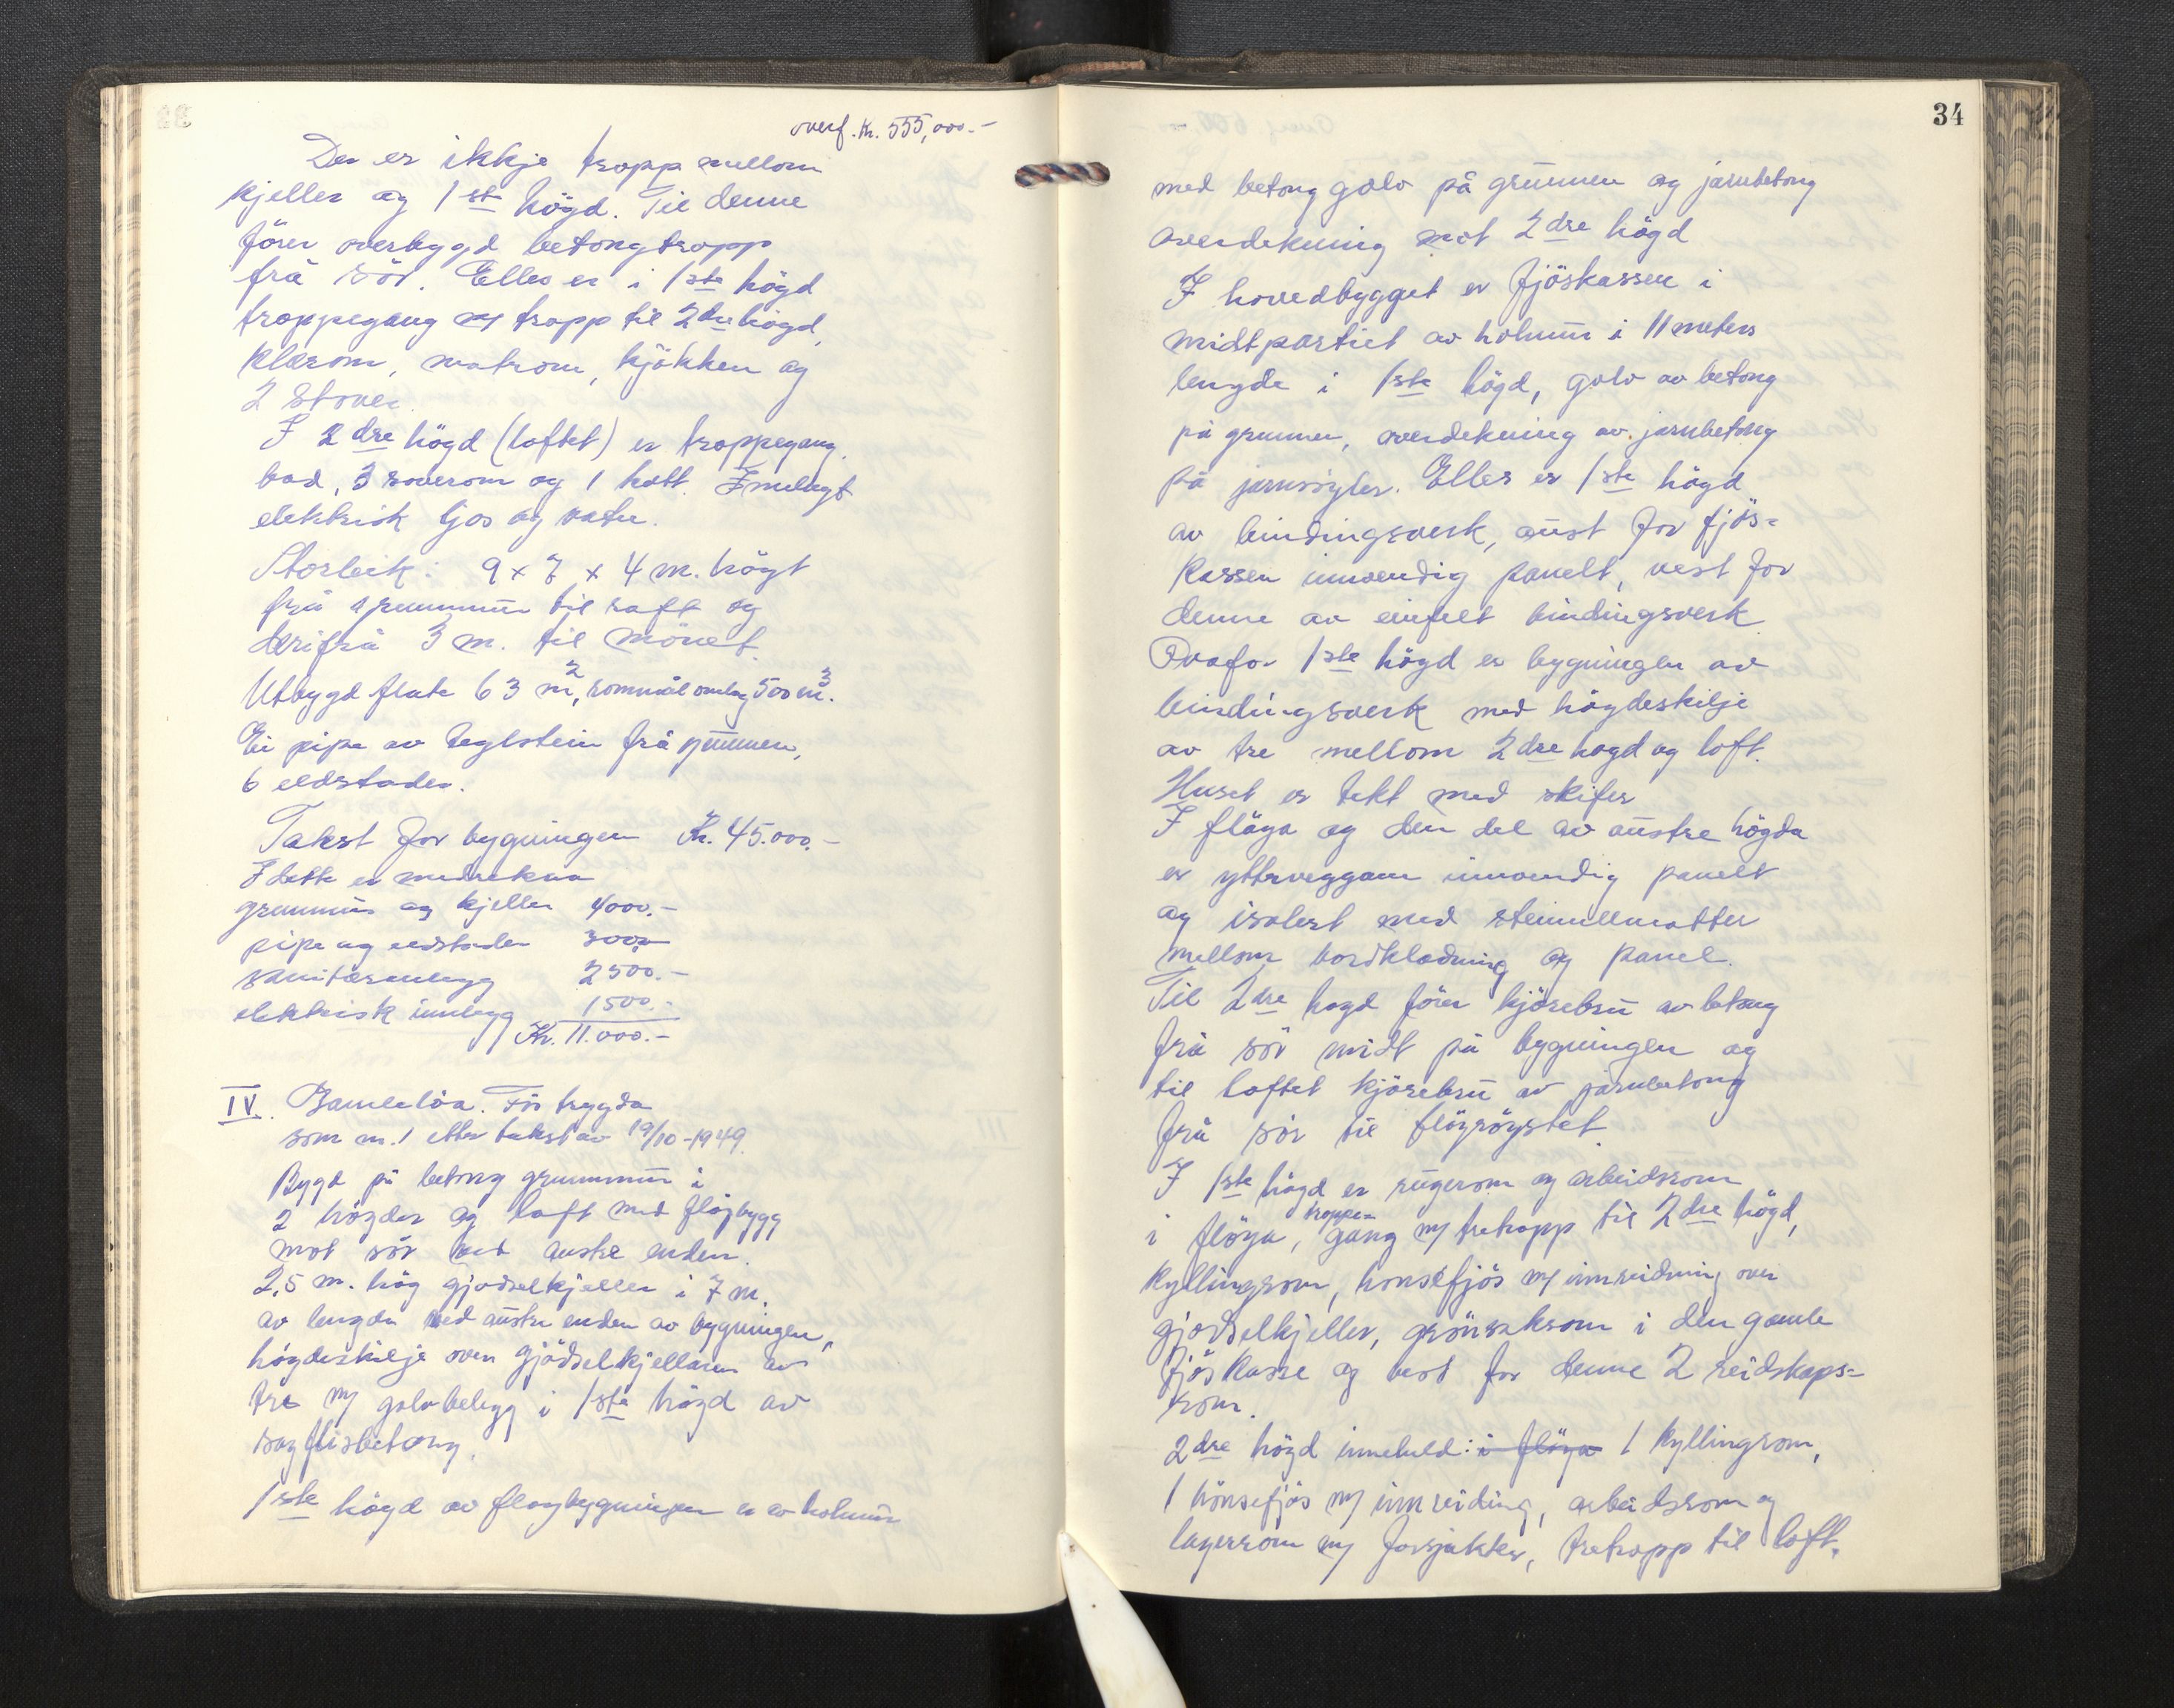 overf. Kr. 555,000.-
Der er ikkje tropp mellom
kjeller og 1ste högd. Til denne
förer overbygd betongtropp
frå sör. Elles er i 1ste högd
troppegang m/ tropp til 2dre högd,
klærom, matrom, kjökken og
2 stover.
I 2dre högd (loftet) er troppegang,
bad, 3 soverom og 1 kott. Innlagt
elektrisk ljos og vatn.
Storleik: 9 x 7 x 4 m. högt
frå grunnmur til raft og
derifrå 3 m. til mönet.
Utbygd flate 63 m2, rommål omlag 500 m3.
Ei pipe av teglstein frå grunnen,
6 eldstader.
Takst for bygningen Kr. 45.000.-
I dette er medrekna
grunnmur og kjeller 4000.-
pipe og eldstader 3000.-
sanitæranlegg 2500.-
elektrisk innlegg 1500.-
Kr. 11.000.-
IV. Gamlelöa. För trygda
som nr. 1 etter takst av 19/10-1949.
Bygd på betong grunnmur i
2 högder og loft med flöybygg
mot sör ved austre enden.
2,5 m. høg gjødselkjeller i 7 m.
av lengda ved austre enden av bygningen,
högdeskilje over gjödselkjellaren av
tre m/ golvbelegg i 1ste högd av
sagflisbetong.
1ste högd av fløybygningen er av holmur
34
med betong golv på grunnen og jarnbetong
overdekning mot 2dre högd
I hovedbygget er fjöskassen i
midtpartiet av holmur i 11 meters
lengde i 1ste högd, golv av betong
på grunnen, overdekning av jarnbetong
på jarnsöyler. Elles er 1ste högd
av bindingsverk, aust for fjös-
kassen innvendig panelt, vest for
denne av einfelt bindingsverk
Ovafor 1ste högd er bygningen av
bindingsverk med högdeskilje
av tre mellom 2dre høgd og loft.
Huset er tekt med skifer
I flöya og den del av austre högda
er ytterveggane innvendig panelt
og isolert med steinullmatter
mellom bordkledning og panel.
Til 2dre høgd förer kjörebru av betong
frå sör midt på bygningen og
til loftet kjörebru av jarnbetong
frå sör til flöyröystet.
I 1ste högd er rugerom og arbeidsrom
i flöya, troppe- gang m/ tretropp til 2dre högd,
kyllingrom, honsefjös m/ innreidning over
gjødselkjeller, grönsaksrom i den gamle
fjöskasse og vest for denne 2 reidskaps-
rom.
2dre högd inneheld: i flöya 1 kyllingrom,
1 hönsefjös m/ innreiding, arbeidsrom og
lagerrom m/ forsjakter, tretropp til loft.